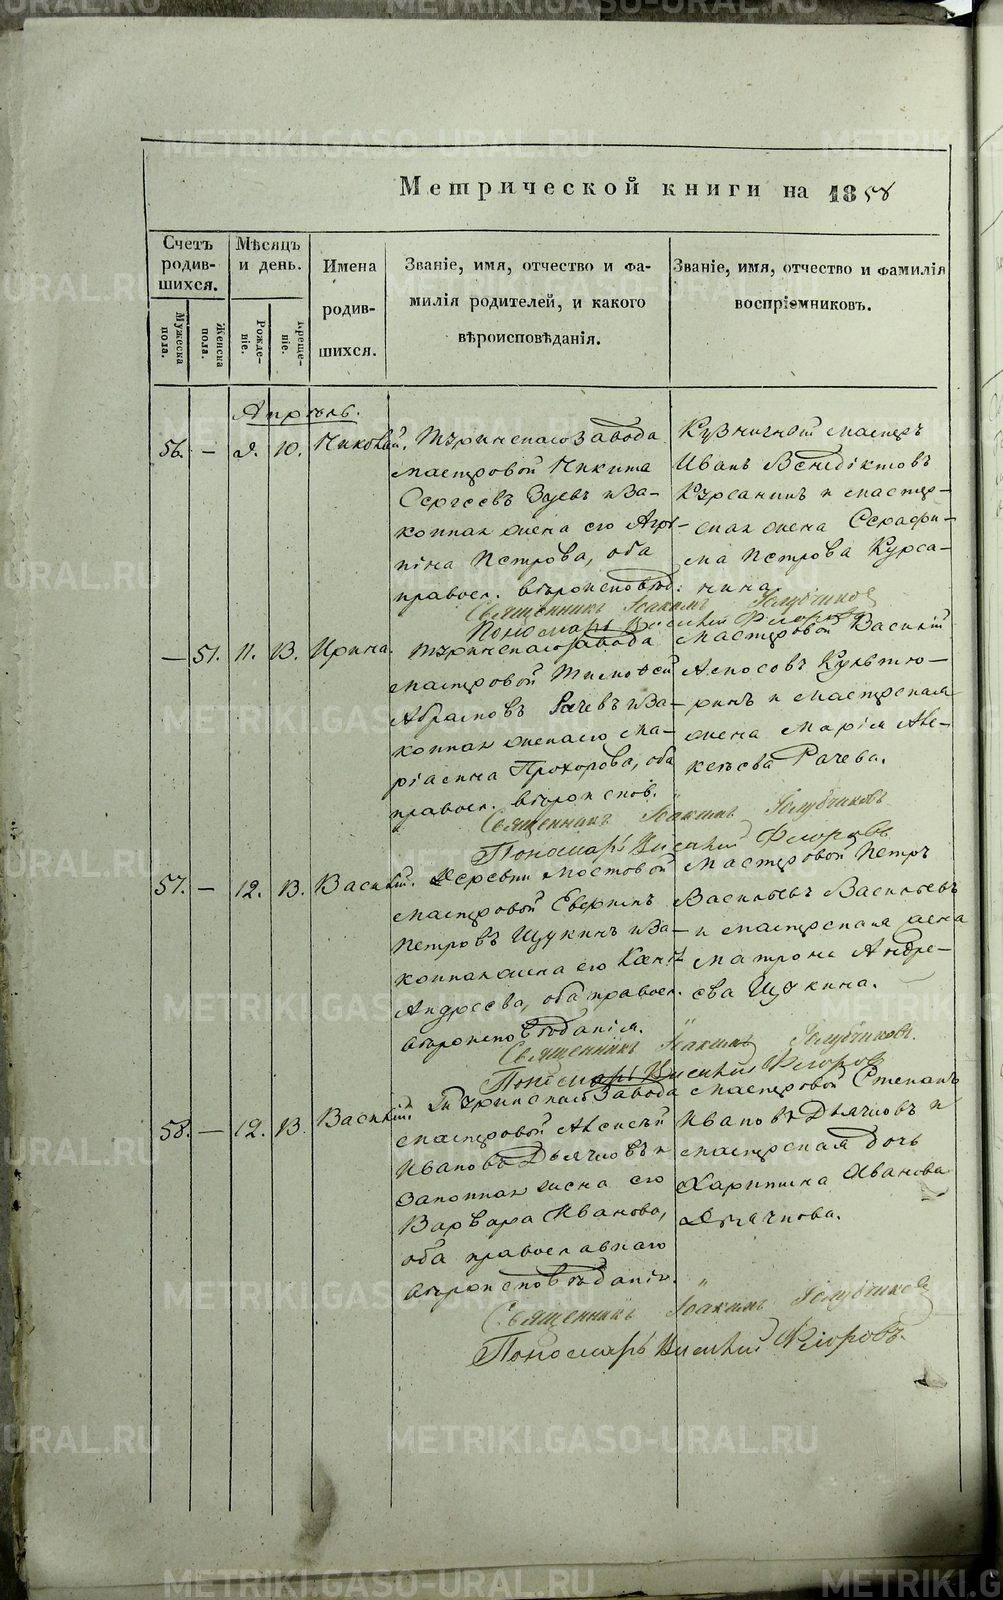 Метрической книги на 1858
Счетъ родившихся.
Мужеска пола.
Женска пола.
Мѣсяцъ и день.
Рожденіе.
Крещеніе.
Имена родившихся.
Званіе, имя, отчество и фамилія родителей, и какого вѣроисповѣданія.
Званіе, имя, отчество и фамилія воспріемниковъ.
Апрѣль.
56. — 9. 10. Николай.
завода
мастеровой Никита
Сергѣевъ Зуевъ и за-
конная жена его Агри-
пина Петрова, оба
правосл. вѣроисповѣд:
Кузничной мастеръ
Иванъ Венедиктовъ
Курсанинъ и мастер-
ская жена Серафи-
ма Петрова Курса-
нина
Священникъ Іоакимъ Голубчиковъ
Пономарь Федоровъ
— 51. 11. 13. Ирина.
завода
мастеровой Тимофей
Абрамовъ Рачевъ и за-
конная жена его Ма-
Прохорова, оба
правосл. вѣроиспов.
Мастеровой Василій
и мастерская
жена Марія Але-
ксѣева Рачева.
Священникъ Іоакимъ Голубчиковъ
Пономарь Федоровъ
57. — 12. 13. Василій.
Деревни Мостовой
мастеровой
Петровъ Щукинъ и за-
конная жена его
Андреева, оба правосл.
вѣроисповѣданія.
Мастеровой Петръ
Васильевъ Васильевъ
и мастерская жена
Матрона Андре-
ева Щукина.
Священникъ Іоакимъ Голубчиковъ.
Пономарь Федоровъ
58. — 12. 13. Василій.
завода
мастеровой Алексѣй
Ивановъ Дьячковъ и
законная жена его
Варвара Иванова,
оба православнаго
вѣроисповѣданія.
Мастеровой Степанъ
Ивановъ Дьячковъ и
мастерская дочь
Харитина Иванова
Дьячкова.
Священникъ Іоакимъ Голубчиковъ
Пономарь Федоровъ.
METRIKI.GASO-URAL.RU